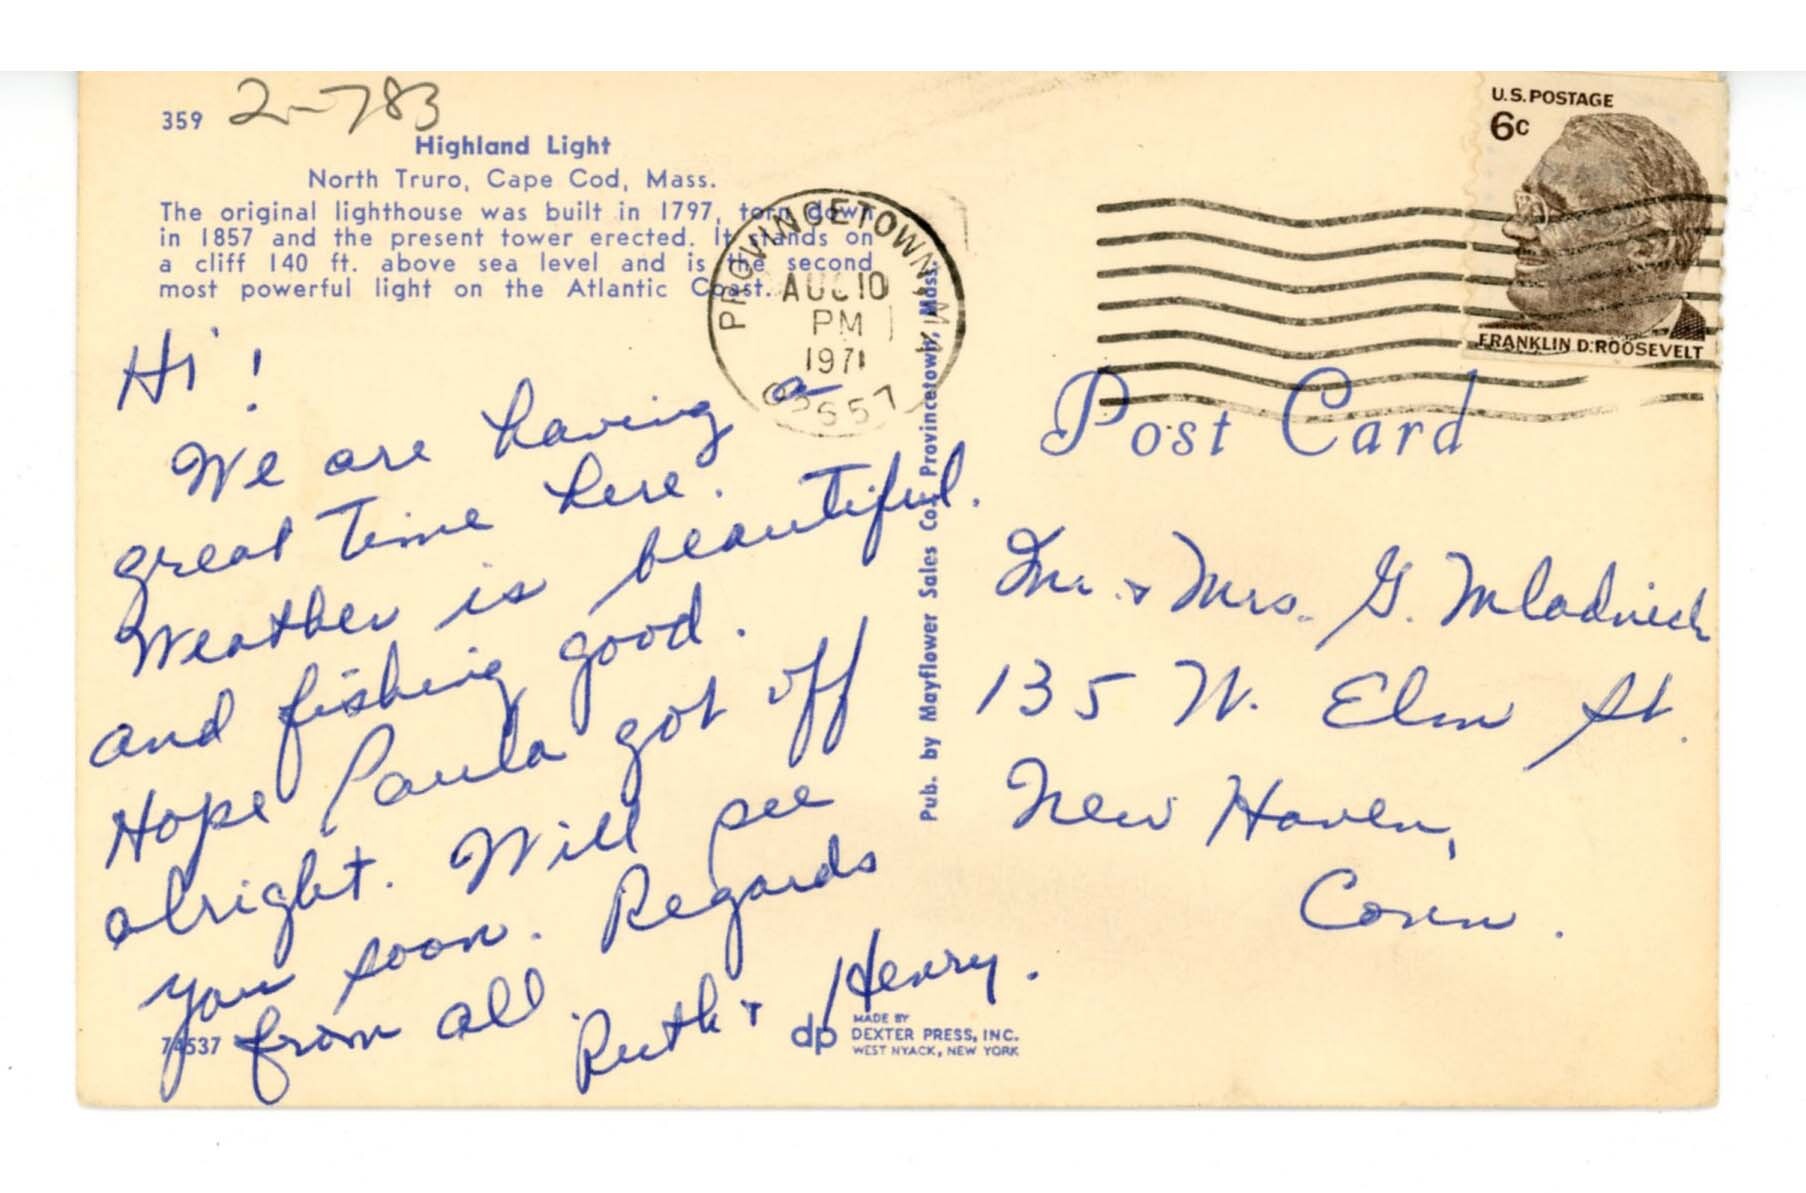 359 2-783
Highland Light
North Truro, Cape Cod, Mass.
The original lighthouse was built in 1797, torn down
in 1857 and the present tower erected. It stands on
a cliff 140 ft. above sea level and is the second
most powerful light on the Atlantic Coast.
Hi!
We are having a
great time here.
Weather is beautiful.
and fishing good.
Hope Paula got off
alright. Will see
you soon. Regards
from all.
Ruth & Henry.
PROVINCETOWN, MA
AUG 10
PM
1971
U.S. POSTAGE
6c
FRANKLIN D. ROOSEVELT
Post Card
Pub. by Mayflower Sales Co., Provincetown, Mass.
Mr. & Mrs. G. Mladnich
135 W. Elm St.
New Haven,
Conn.
dp
MADE BY
DEXTER PRESS, INC.
WEST NYACK, NEW YORK